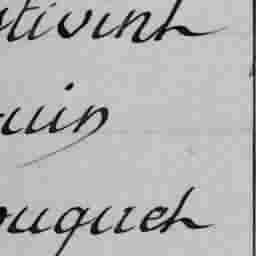 stivint
uin
ouquet